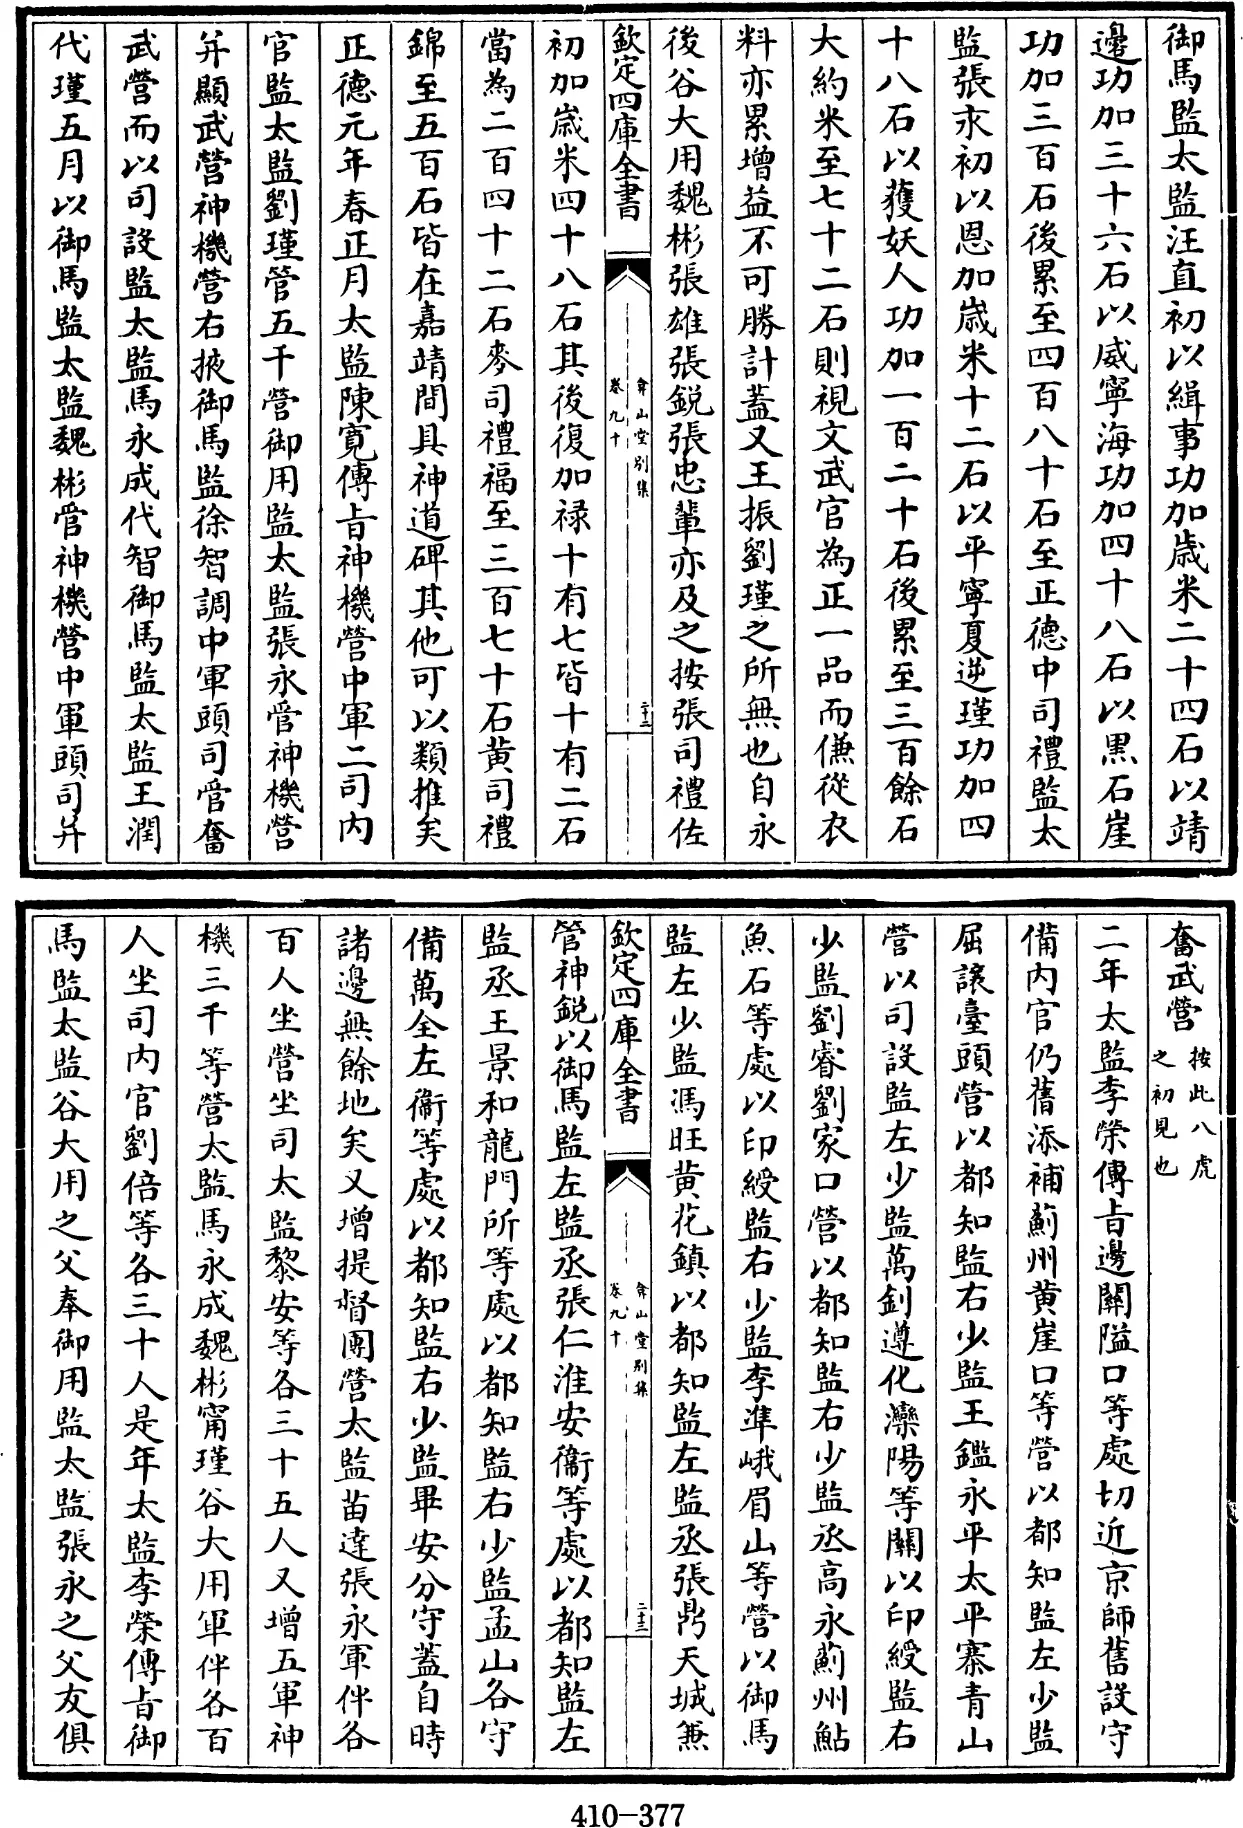 御馬監太監汪直初以緝事功加歲米二十四石以靖
邊功加三十六石以威寧海功加四十八石以黒石崖
功加三百石後累至四百八十石至正德中司禮監太
監張永初以恩加歲米十二石以平寧夏逆瑾功加四
十八石以獲妖人功加一百二十石後累至三百餘石
大約米至七十二石則視文武官為正一品而傔從衣
料亦累增益不可勝計蓋又王振劉瑾之所無也自永
後谷大用魏彬張雄張銳張忠輩亦及之按張司禮佐
欽定四庫全書
弇山堂別集
卷九十
二十二
初加歲米四十八石其後復加禄十有七皆十有二石
當為二百四十二石麥司禮福至三百七十石黄司禮
錦至五百石皆在嘉靖間具神道碑其他可以類推矣
正德元年春正月太監陳寛傳旨神機營中軍二司内
官監太監劉瑾管五千營御用監太監張永管神機營
并顯武營神機營右掖御馬監徐智調中軍頭司管奮
武營而以司設監太監馬永成代智御馬監太監王潤
代瑾五月以御馬監太監魏彬管神機營中軍頭司并
奮武營
按此八虎
之初見也
二年太監李榮傳旨邊關隘口等處切近京師舊設守
備内官仍舊添補薊州黄崖口等營以都知監左少監
屈讓臺頭營以都知監右少監王鑑永平太平寨青山
營以司設監左少監萬釗遵化灤陽等關以印綬監右
少監劉睿劉家口營以都知監右少監丞高永薊州鮎
魚石等處以印綬監右少監李準峨眉山等營以御馬
監左少監馮旺黄花鎮以都知監左監丞張鼎天城兼
欽定四庫全書
弇山堂別集
卷九十
二十三
管神鋭以御馬監左監丞張仁淮安衞等處以都知監左
監丞王景和龍門所等處以都知監右少監孟山各守
備萬全左衞等處以都知監右少監畢安分守蓋自時
諸邊無餘地矣又增提督團營太監苗逵張永軍伴各
百人坐營坐司太監黎安等各三十五人又增五軍神
機三千等營太監馬永成魏彬甯瑾谷大用軍伴各百
人坐司内官劉倍等各三十人是年太監李榮傳旨御
馬監太監谷大用之父奉御用監太監張永之父友俱
410-377